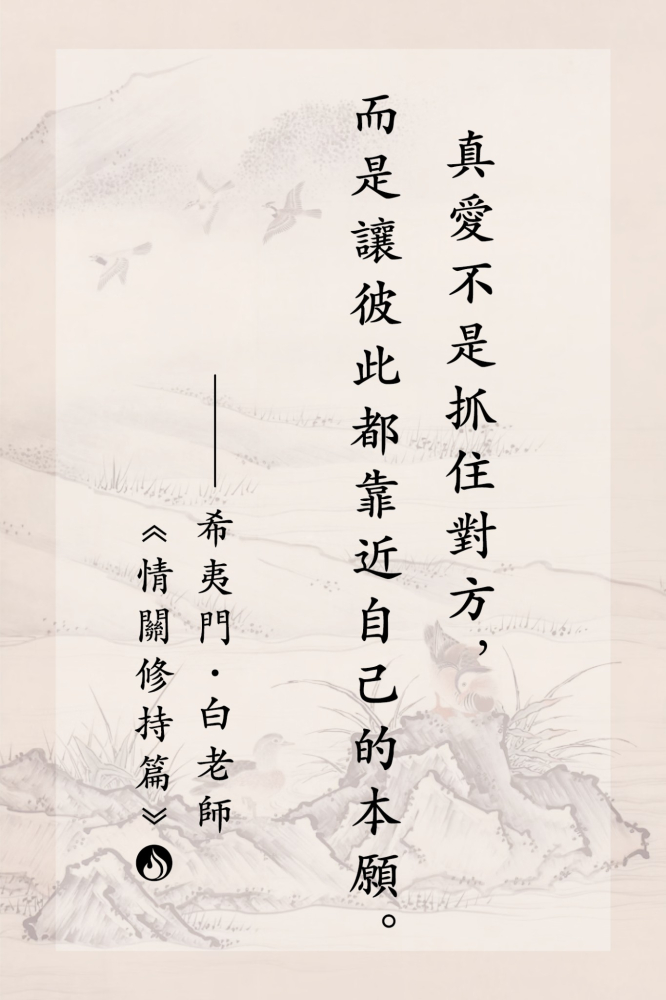 真愛不是抓住對方，
而是讓彼此都靠近自己的本願。
——希夷門·白老師
《情關修持篇》